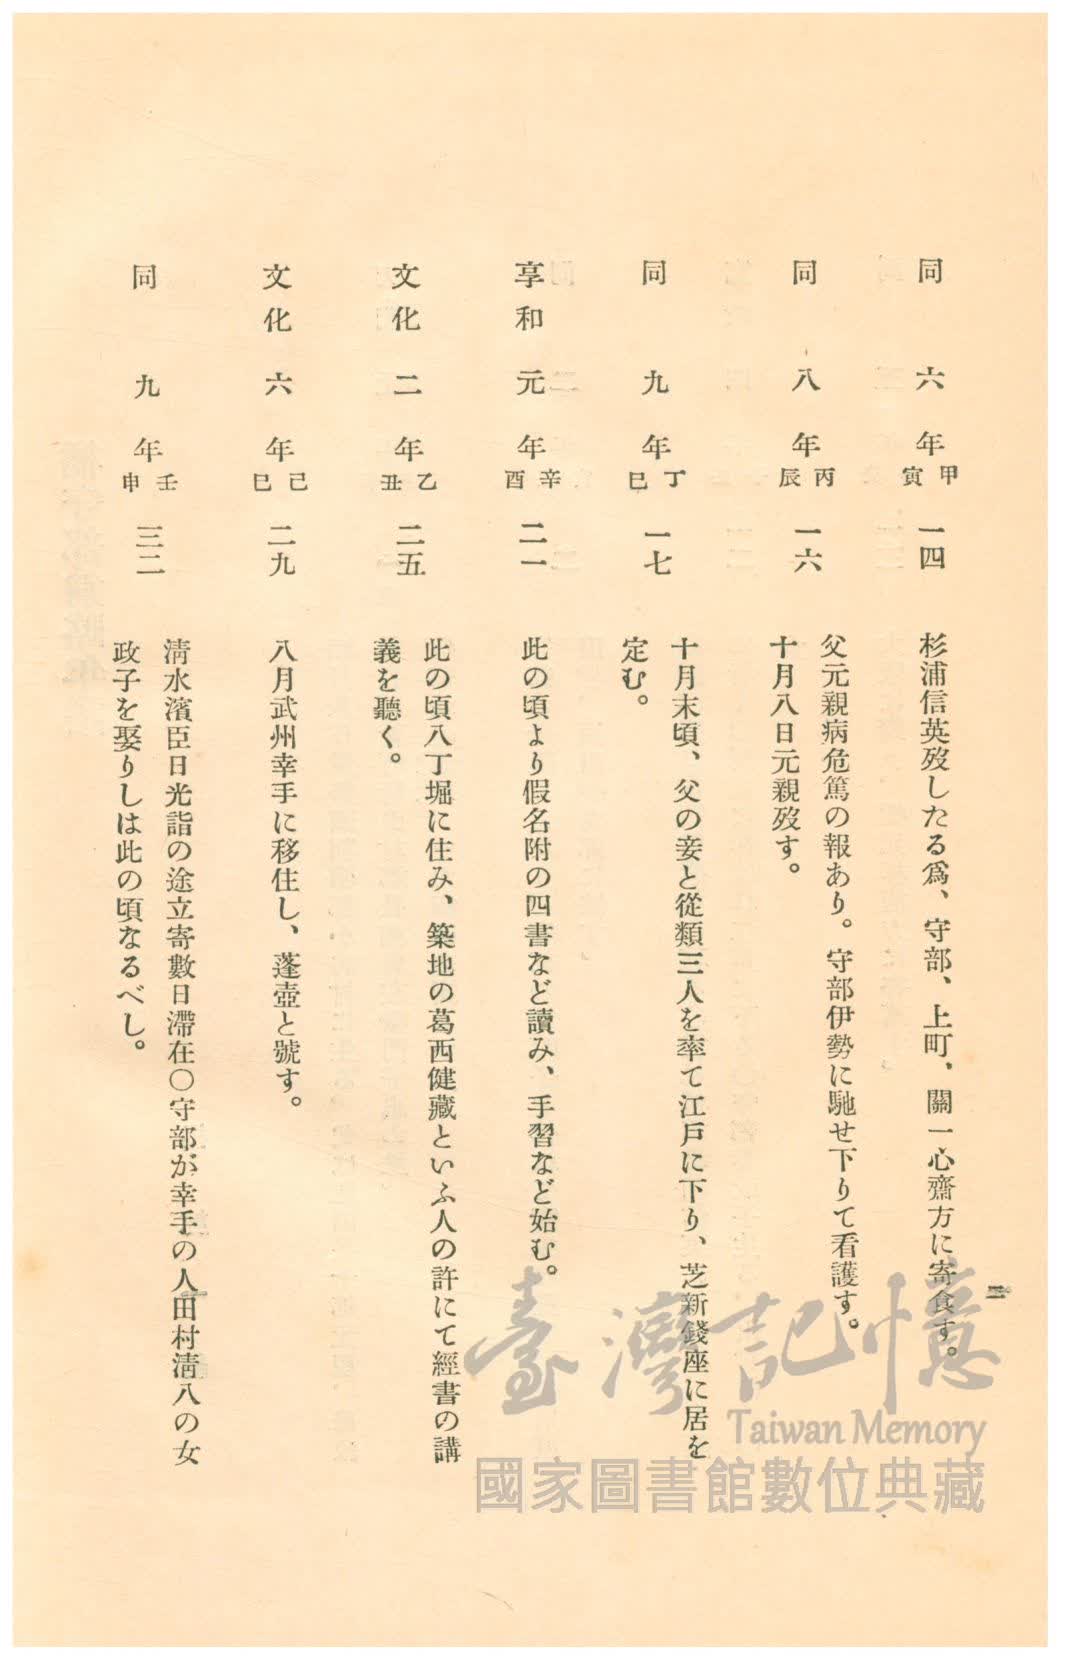 二
同六年甲寅一四 杉浦信英歿したる爲、守部、上町、關一心齋方に寄食す。
同八年丙辰一六 父元親病危篤の報あり。守部伊勢に馳せ下りて看護す。
十月八日元親歿す。
同九年丁巳一七 十月末頃、父の妾と從類三人を率て江戸に下り、芝新錢座に居を
定む。
享和元年辛酉二一 此の頃より假名附の四書など讀み、手習など始む。
文化二年乙丑二五 此の頃八丁堀に住み、築地の葛西健藏といふ人の許にて經書の講
義を聽く。
文化六年己巳二九 八月武州幸手に移住し、蓬壺と號す。
同九年壬申三二 淸水濱臣日光詣の途立寄數日滯在〇守部が幸手の人田村淸八の女
政子を娶りしは此の頃なるべし。
臺灣記憶
Taiwan Memory
國家圖書館數位典藏